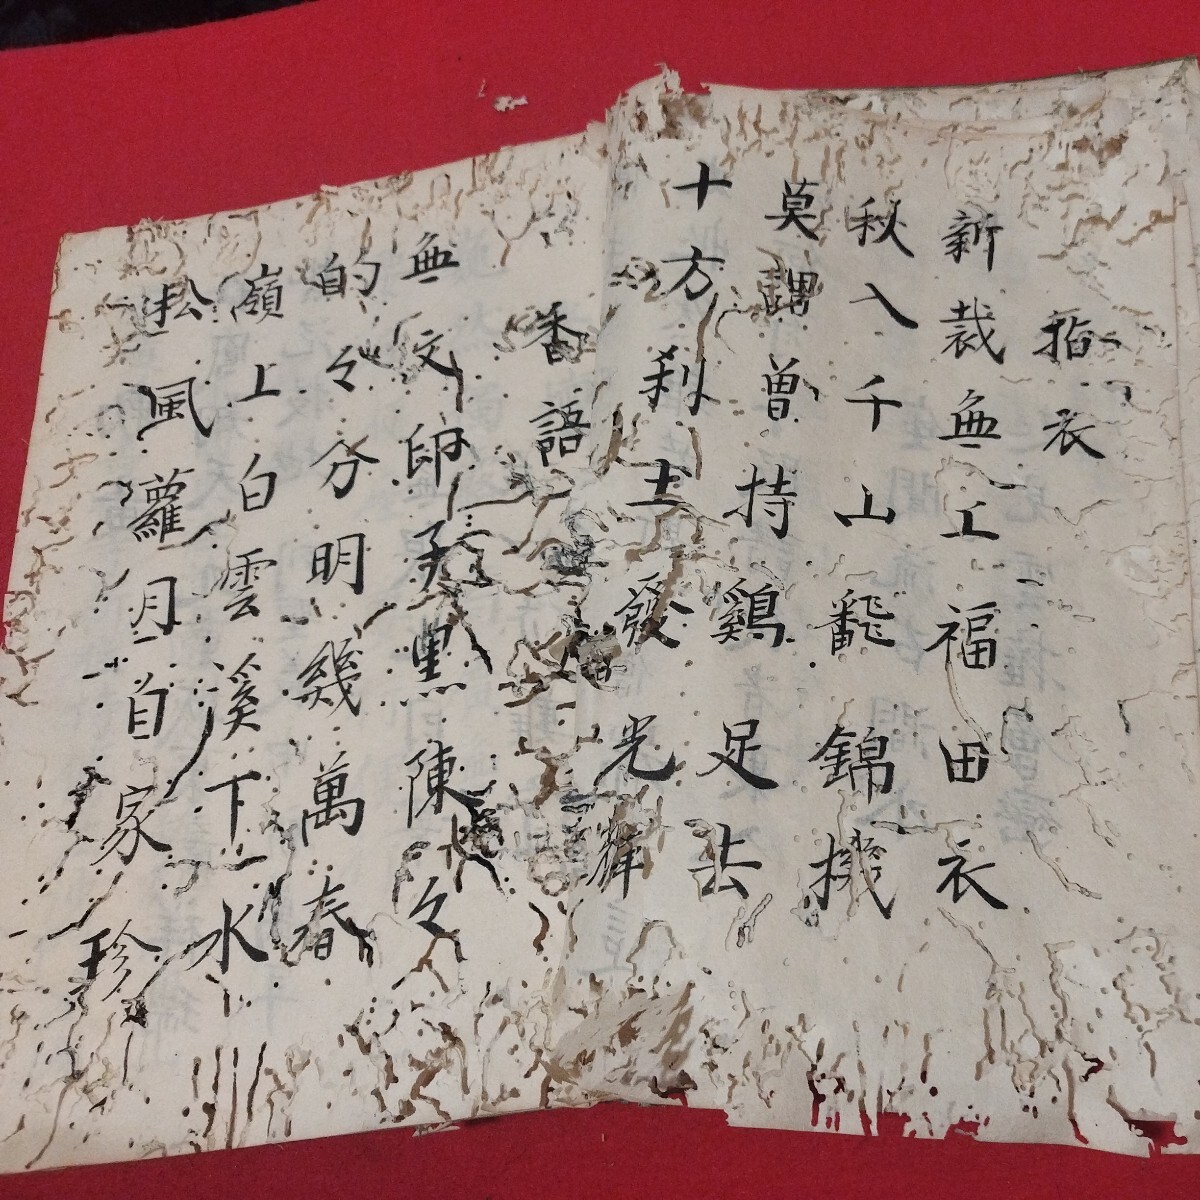 指衣
新裁無工福田衣
秋入千山飜錦機
莫謂曽持鷄足去
十方刹土發光輝
香語
無文印子重陳々
的々分明幾萬春
嶺上白雲溪下水
松風蘿月自家珍